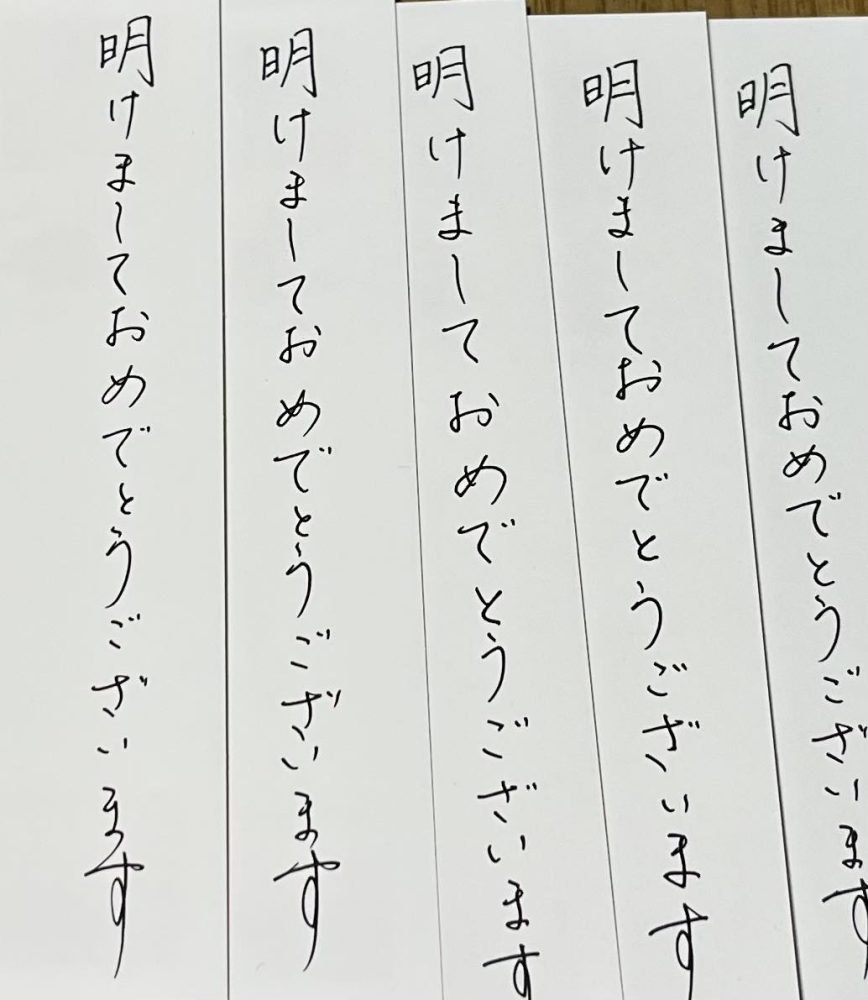 明けましておめでとうございます
明けましておめでとうございます
明けましておめでとうございます
明けましておめでとうございます
明けましておめでとうございます